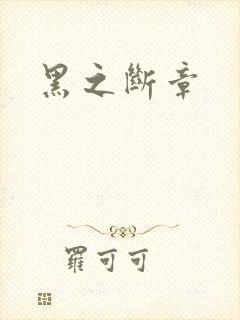 黑之斷章
羅可可